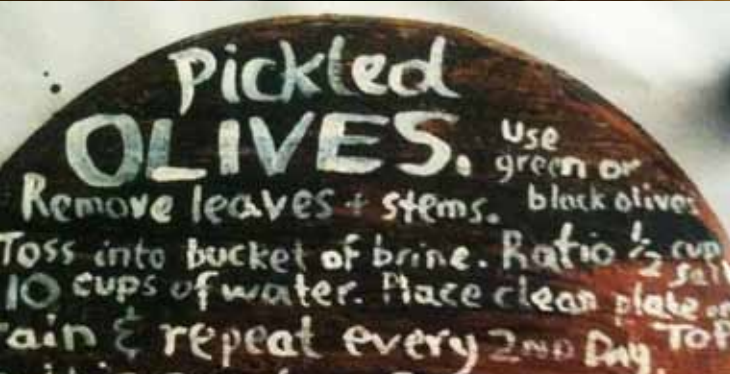 Pickled
OLIVES. Use
green or
Remove leaves + stems. black olives
Toss into bucket of brine. Ratio ½ cup
salt
10 cups of water. Place clean plate on
Top
ain & repeat every 2ND Day.